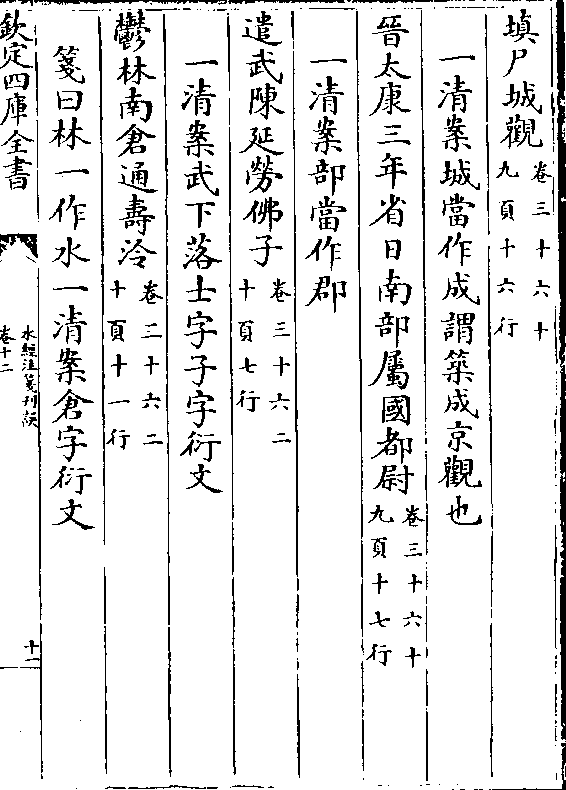 填尸城觀卷三十六十九頁十六行
一清案城當作成謂築成京觀也
晉太康三年省日南部屬國都尉卷三十六十九頁十七行
一清案部當作郡
遣武陳延勞佛子卷三十六二十頁七行
一清案武下落士字子字衍文
鬱林南倉通壽泠卷三十六二十頁十一行
箋曰林一作水一清案倉字衍文
欽定四庫全書
水經注箋刊誤
卷十二
十一